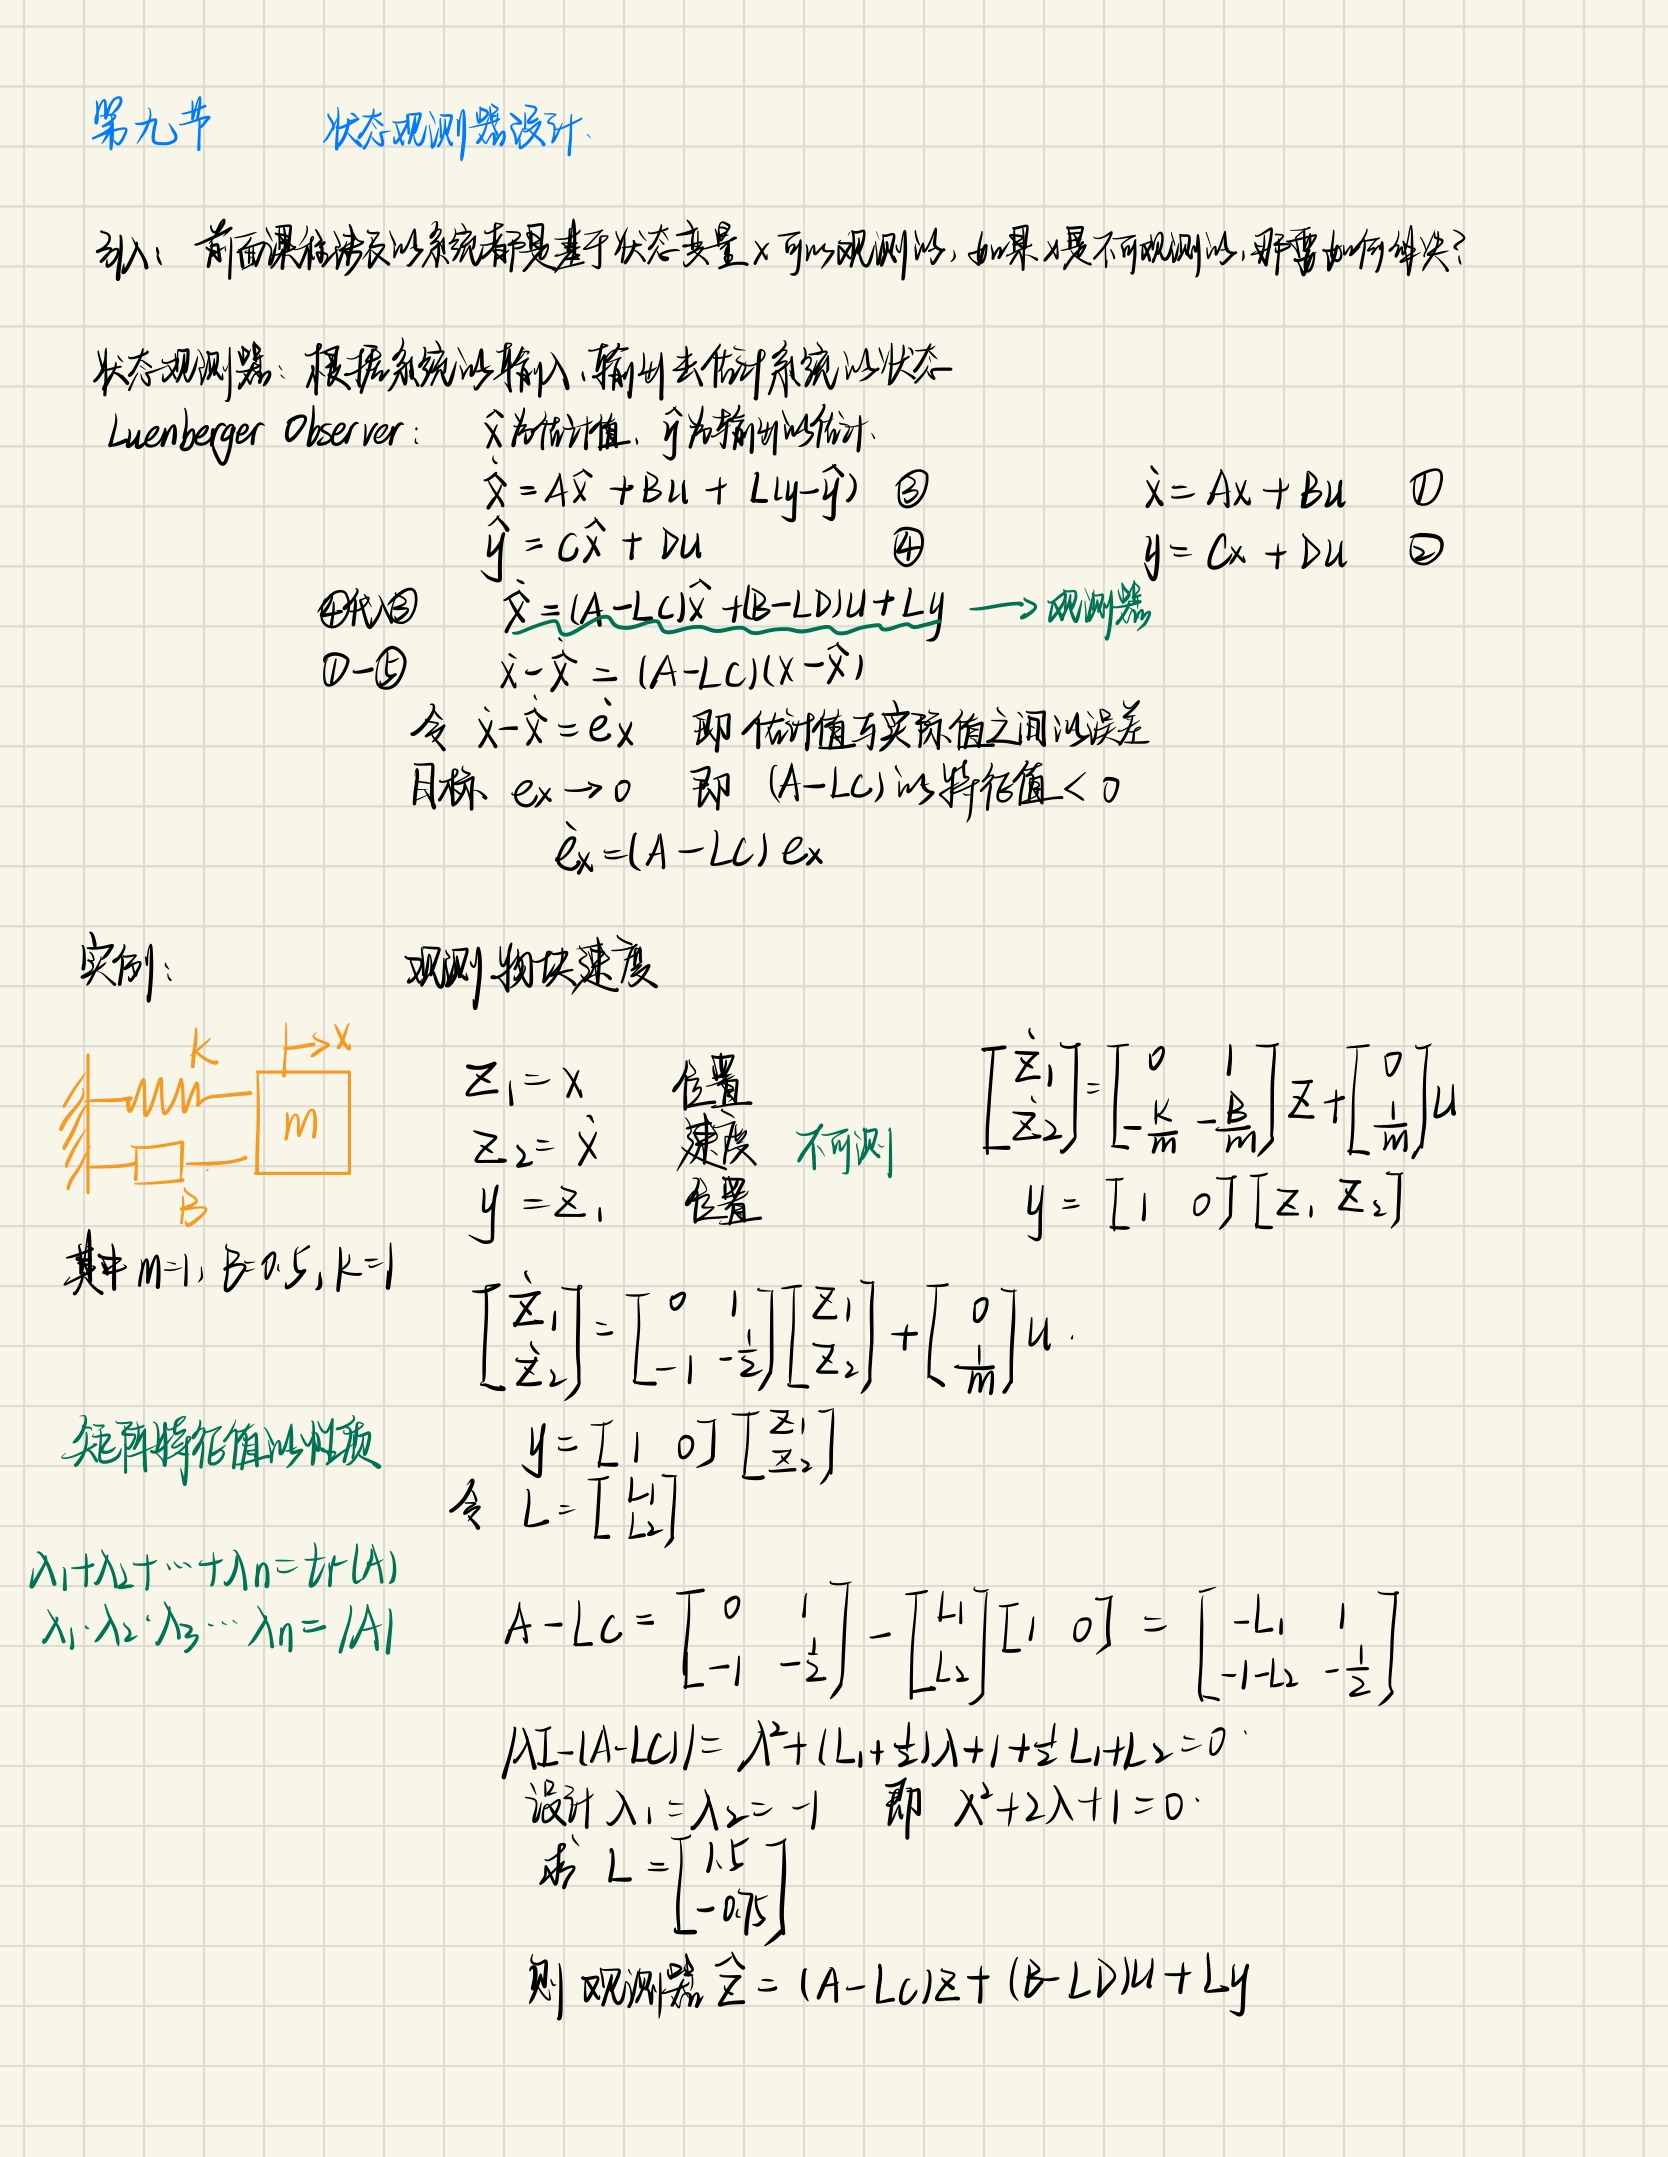 第九节 状态观测器设计、
引入：前面课程涉及的系统都是基于状态变量x可以观测的，如果x是不可观测的，那需如何解决？
状态观测器：根据系统的输入、输出去估计系统的状态
Luenberger Observer： x̂为估计值、ŷ为输出的估计、
x̂̇ = Ax̂ + Bu + L(y-ŷ) ③ ẋ = Ax + Bu ①
ŷ = Cx̂ + Du ④ y = Cx + Du ②
④代入③ x̂̇ = (A-LC)x̂ + (B-LD)u + Ly → 观测器
①-⑤ ẋ-x̂̇ = (A-LC)(x-x̂)
令 ẋ-x̂̇ = ėx 即 估计值与实际值之间的误差
目标 ex→0 即 (A-LC)的特征值<0
ėx = (A-LC) ex
实例： 观测物块速度
K
x
m
B
其中 m=1, B=0.5, K=1
z₁ = x 位置
z₂ = ẋ 速度 不可测
y = z₁ 位置
[ż₁; ż₂] = [0 1; -K/m -B/m] z + [0; 1/m] u
y = [1 0] [z₁ z₂]
[ż₁; ż₂] = [0 1; -1 -1/2] [z₁; z₂] + [0; 1/m] u.
y = [1 0] [z₁; z₂]
令 L = [L₁; L₂]
矩阵特征值的性质
λ₁+λ₂+⋯+λn = tr(A)
λ₁·λ₂·λ₃⋯λn = |A|
A-LC = [0 1; -1 -1/2] - [L₁; L₂] [1 0] = [-L₁ 1; -1-L₂ -1/2]
|λI-(A-LC)| = λ²+(L₁+1/2)λ+1+1/2 L₁+L₂=0
设计 λ₁=λ₂=-1 即 λ²+2λ+1=0.
求 L = [1.5; -0.75]
则 观测器 ẑ = (A-LC)z + (B-LD)u + Ly